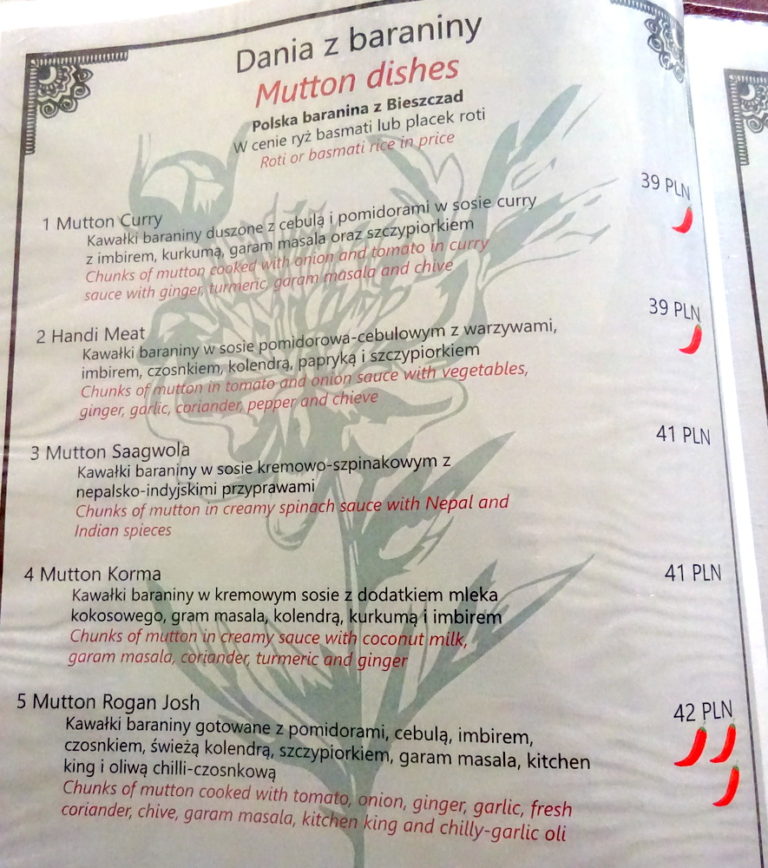 Dania z baraniny
Mutton dishes
Polska baranina z Bieszczad
W cenie ryż basmati lub placek roti
Roti or basmati rice in price
1 Mutton Curry 39 PLN
Kawałki baraniny duszone z cebulą i pomidorami w sosie curry
z imbirem, kurkumą, garam masala oraz szczypiorkiem
Chunks of mutton cooked with onion and tomato in curry
sauce with ginger, turmeric, garam masala and chive
2 Handi Meat 39 PLN
Kawałki baraniny w sosie pomidorowa-cebulowym z warzywami,
imbirem, czosnkiem, kolendrą, papryką i szczypiorkiem
Chunks of mutton in tomato and onion sauce with vegetables,
ginger, garlic, coriander, pepper and chieve
3 Mutton Saagwola 41 PLN
Kawałki baraniny w sosie kremowo-szpinakowym z
nepalsko-indyjskimi przyprawami
Chunks of mutton in creamy spinach sauce with Nepal and
Indian spieces
4 Mutton Korma 41 PLN
Kawałki baraniny w kremowym sosie z dodatkiem mleka
kokosowego, gram masala, kolendrą, kurkumą i imbirem
Chunks of mutton in creamy sauce with coconut milk,
garam masala, coriander, turmeric and ginger
5 Mutton Rogan Josh 42 PLN
Kawałki baraniny gotowane z pomidorami, cebulą, imbirem,
czosnkiem, świeżą kolendrą, szczypiorkiem, garam masala, kitchen
king i oliwą chilli-czosnkową
Chunks of mutton cooked with tomato, onion, ginger, garlic, fresh
coriander, chive, garam masala, kitchen king and chilly-garlic oli